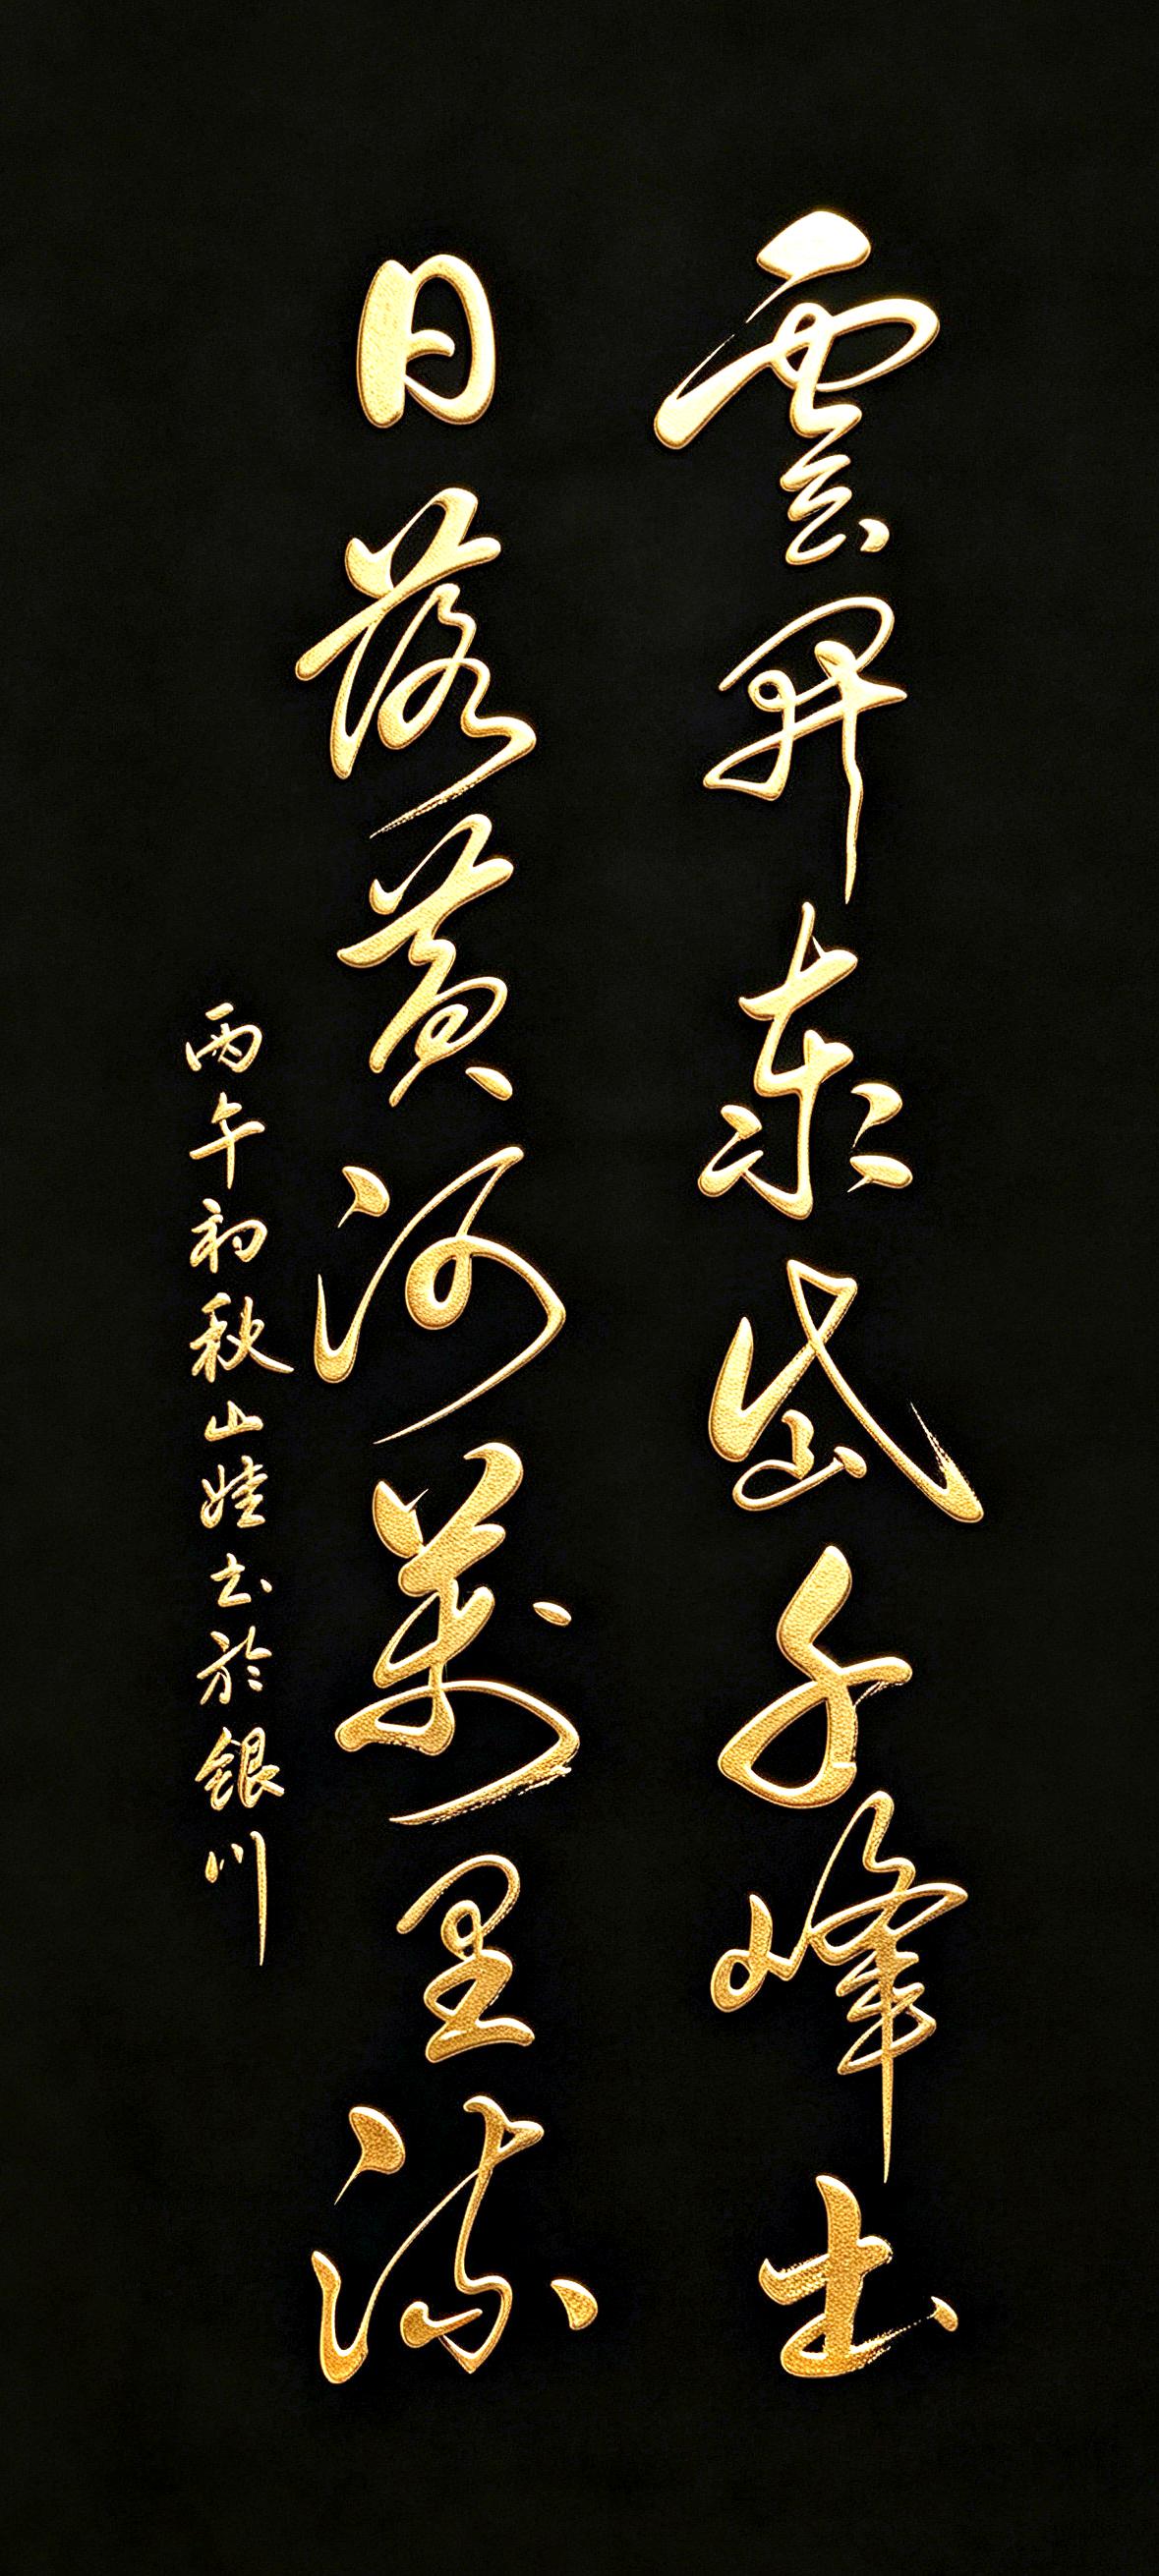 雲開泰岱千峰出
日落黃河萬里流
丙午初秋山娃书於銀川